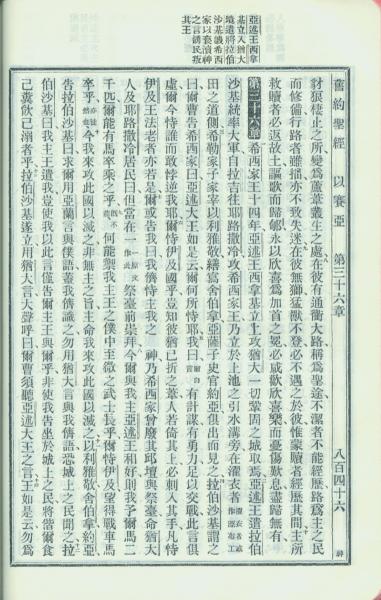 亞述王西拿
基立入猶大
境遣將拉伯
沙基議希西
家以褻瀆神
之言誘民叛
其王
舊約聖經 以賽亞 第三十六章 八百四十六
豺狼棲止之所變爲蘆葦叢生之處在彼有通衢大路稱爲聖途不潔者不能經歷路爲主之民
而修備行路者雖拙亦不致失迷在彼無獅猛獸不登必不遇之於彼惟蒙贖者經歷其間主所
救贖者必返故土謳歌而歸郇永以欣喜爲加首之冕必咸歡欣喜樂而憂傷歎息盡歸無有
第三十六章 希西家王十四年亞述王西拿基立上攻猶大一切鞏固之城取焉亞述王遣拉伯
沙基統大軍自拉吉往耶路撒冷攻希西家王乃立於上池之引水溝旁在濯衣者
田之道側希勒家子家宰以利雅敬繕寫舍伯拿亞薩子史官約亞俱出而見之拉伯沙基謂之
曰爾曹告希西家曰亞述大王如是云爾何所恃耶我曰有計謀有勇力足以交戰此言俱
虛爾今恃誰而敢悖逆我耶爾恃伊及國乎豈知彼猶已折之葦人若倚其上必刺入其手凡恃
伊及王法老者亦若是爾或告我曰我儕恃主我之神乃希西家曾廢其邱壇與祭臺命猶大
人及耶路撒冷居民曰但當在祭臺前崇拜今爾與我主亞述王相好則我予爾馬二
千匹爾能有馬卒乘之乎何能禦我主王之僕中至微之武士長乎爾恃伊及望得戰車馬
卒乎今我來攻此國以滅之非無主之旨主命我來攻此國以滅之以利雅敬舍伯拿約亞
告拉伯沙基曰求爾用亞蘭言與僕語蓋我儕識之勿用猶大言與我儕語恐城上之民聞之拉
伯沙基曰我主王遣我豈使我以此言僅告爾主王與爾乎非使我告坐於城上之民將偕爾食
己糞飲己溺者乎拉伯沙基遂立用猶大言大聲呼曰爾曹須聽亞述大王之言王如是云勿爲